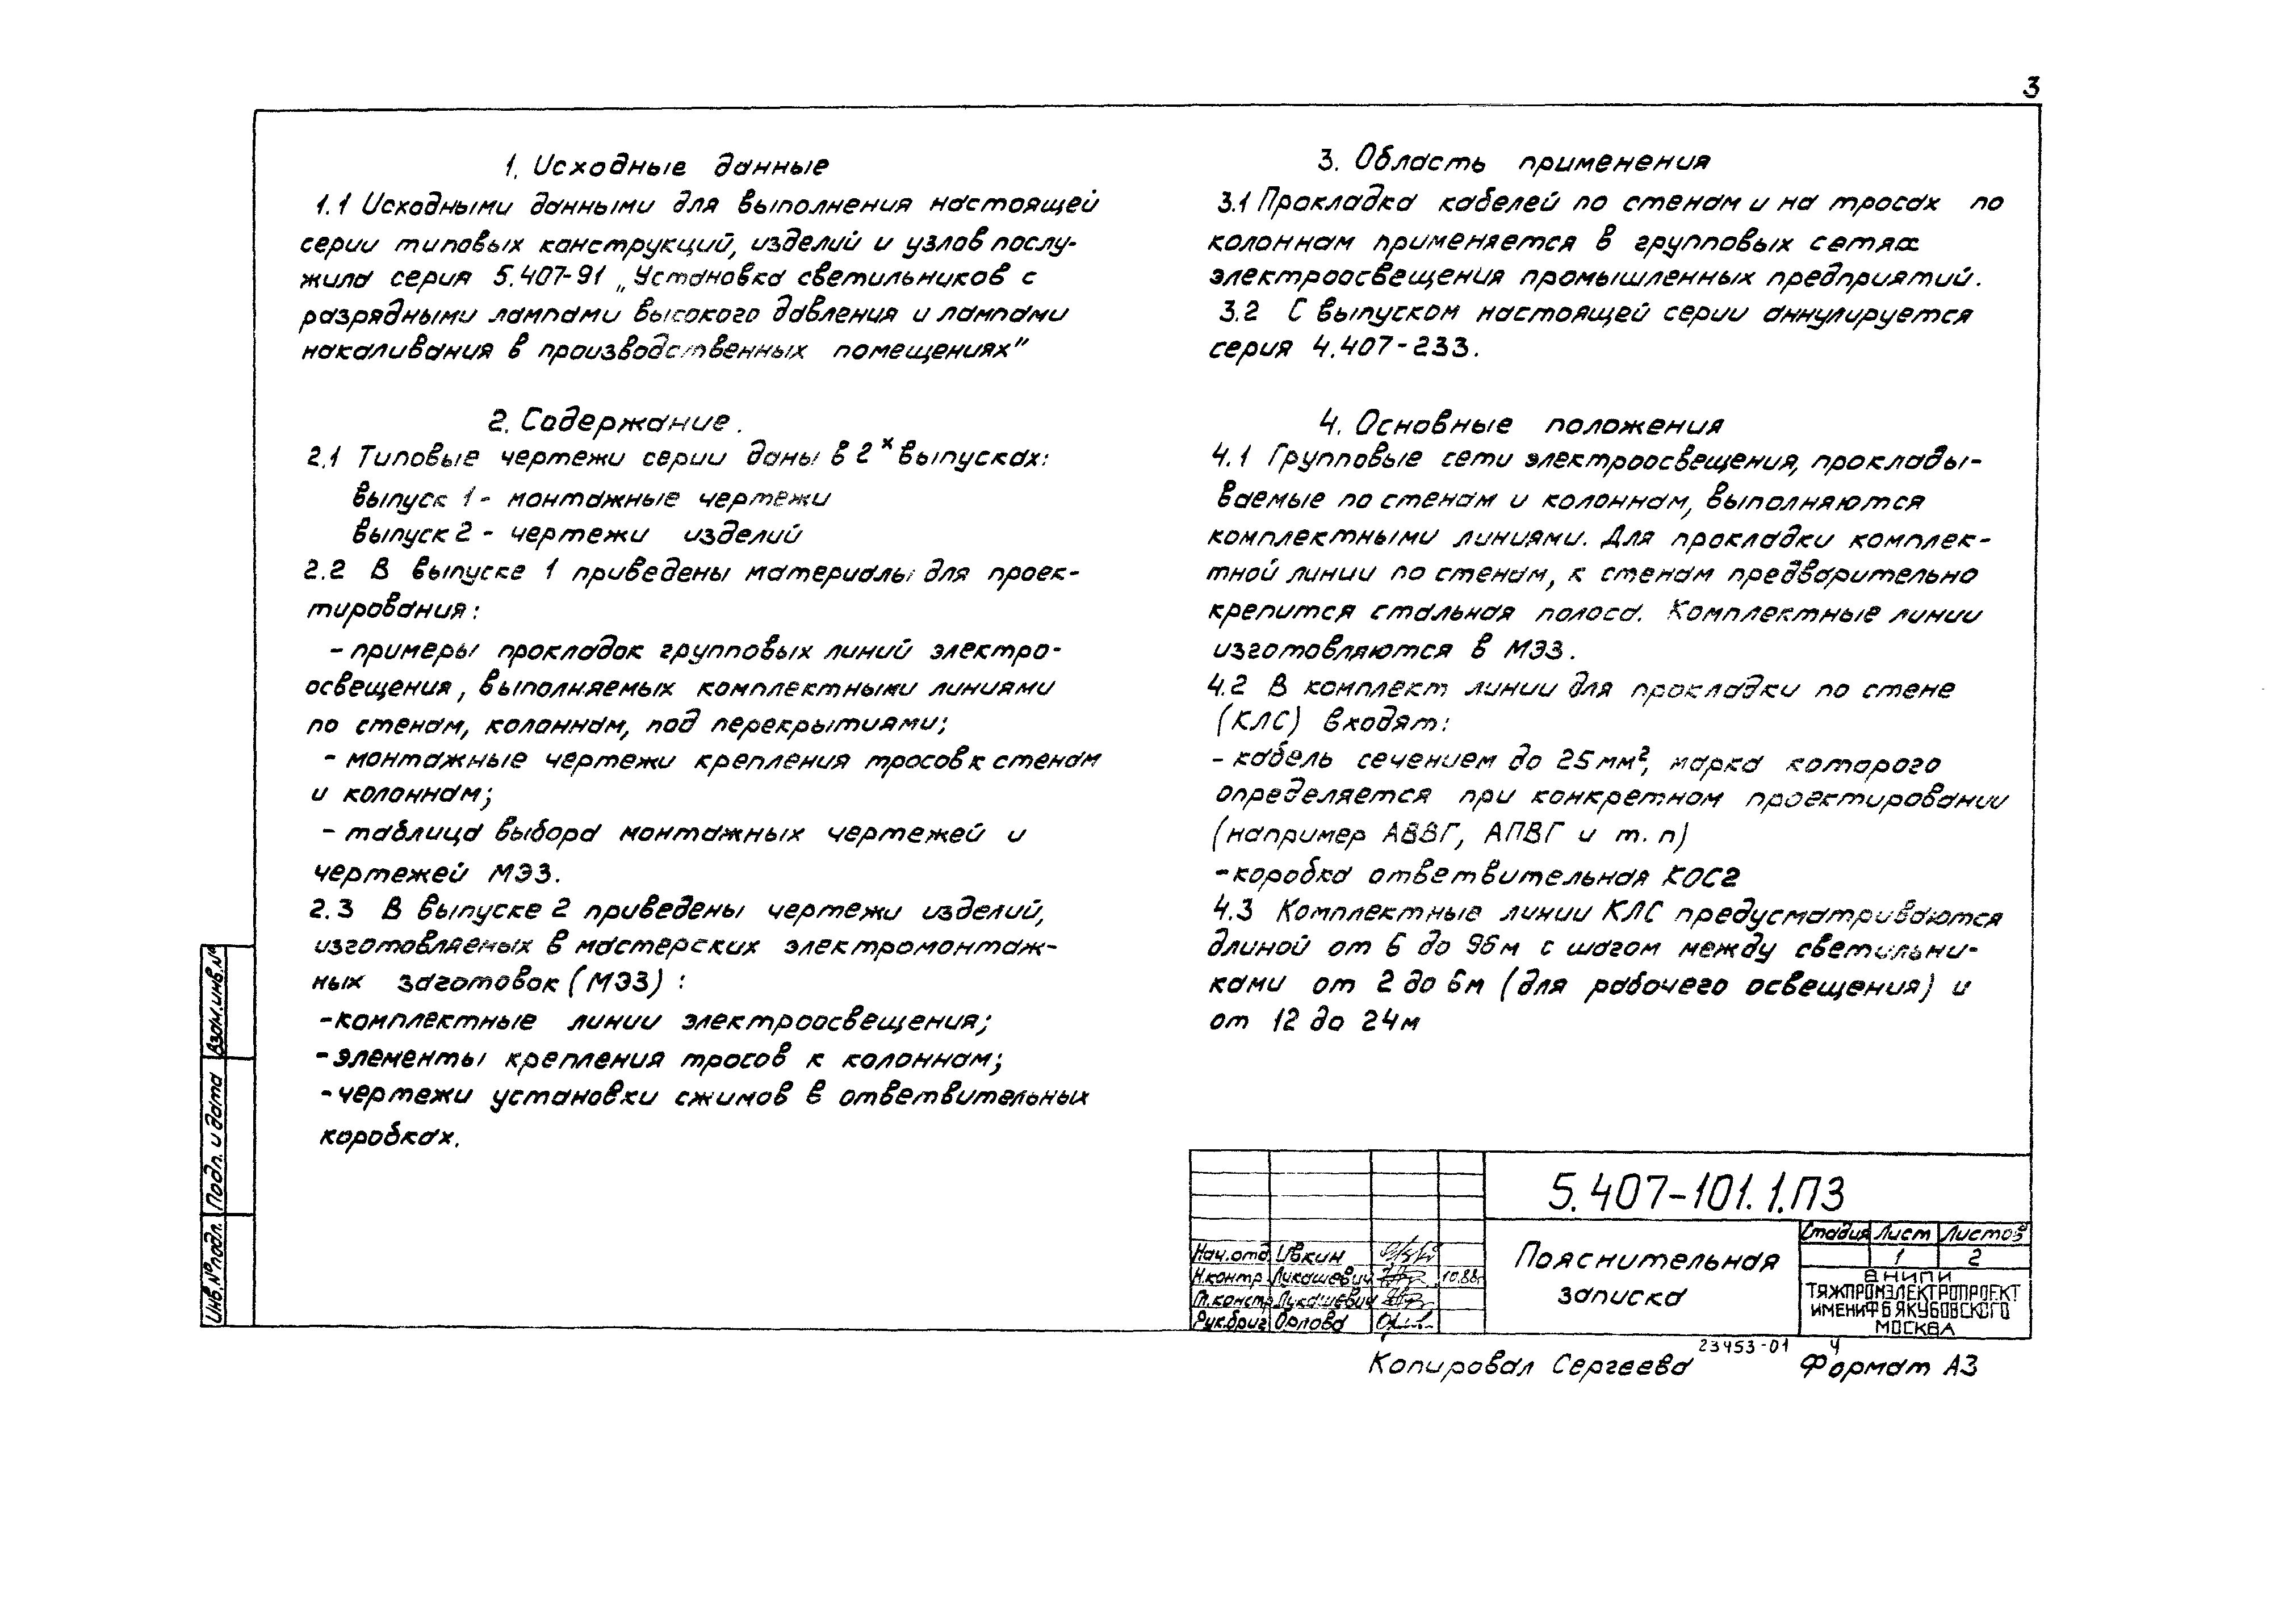 3
1. Исходные данные
1.1 Исходными данными для выполнения настоящей
серии типовых конструкций, изделий и узлов послу-
жила серия 5.407-91 „Установка светильников с
разрядными лампами высокого давления и лампами
накаливания в производственных помещениях"
2. Содержание.
2.1 Типовые чертежи серии даны в 2х выпусках:
выпуск 1 - монтажные чертежи
выпуск 2 - чертежи изделий
2.2 В выпуске 1 приведены материалы для проек-
тирования:
- примеры прокладок групповых линий электро-
освещения, выполняемых комплектными линиями
по стенам, колоннам, под перекрытиями;
- монтажные чертежи крепления тросов к стенам
и колоннам;
- таблица выбора монтажных чертежей и
чертежей МЭЗ.
2.3 В выпуске 2 приведены чертежи изделий,
изготовляемых в мастерских электромонтаж-
ных заготовок (МЭЗ) :
- комплектные линии электроосвещения;
- элементы крепления тросов к колоннам;
- чертежи установки сжимов в ответвительных
коробках.
3. Область применения
3.1 Прокладка кабелей по стенам и на тросах по
колоннам применяется в групповых сетях
электроосвещения промышленных предприятий.
3.2 С выпуском настоящей серии аннулируется
серия 4.407-233.
4. Основные положения
4.1 Групповые сети электроосвещения, проклады-
ваемые по стенам и колоннам, выполняются
комплектными линиями. Для прокладки комплек-
тной линии по стенам, к стенам предварительно
крепится стальная полоса. Комплектные линии
изготовляются в МЭЗ.
4.2 В комплект линии для прокладки по стене
(КЛС) входят:
- кабель сечением до 25 мм², марка которого
определяется при конкретном проектировании
(например АВВГ, АПВГ и т. п)
- коробка ответвительная КОС2
4.3 Комплектные линии КЛС предусматриваются
длиной от 6 до 96м с шагом между светильни-
ками от 2 до 6м (для рабочего освещения) и
от 12 до 24м
Взам.инв.№
Подп. и дата
Инв.№ подл.
5.407-101.1.ПЗ
Нач.отд Ивкин
Н.контр Лукашевич 10.88г
Гл.констр Лукашевич
Рук.бриг Орлова
Пояснительная
записка
Стадия Лист Листов
1 2
ВНИПИ
ТЯЖПРОМЭЛЕКТРОПРОЕКТ
ИМЕНИ Ф Б ЯКУБОВСКОГО
МОСКВА
23453-01 4
Копировал Сергеева Формат А3